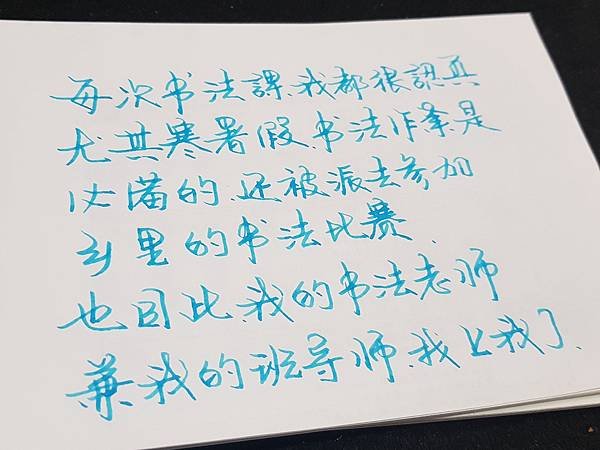 每次书法課、我都很認真
尤其寒暑假、书法作業是
必備的、还被派去参加
乡里的书法比赛
也因此、我的书法老师
兼我的班导师、找上我了、